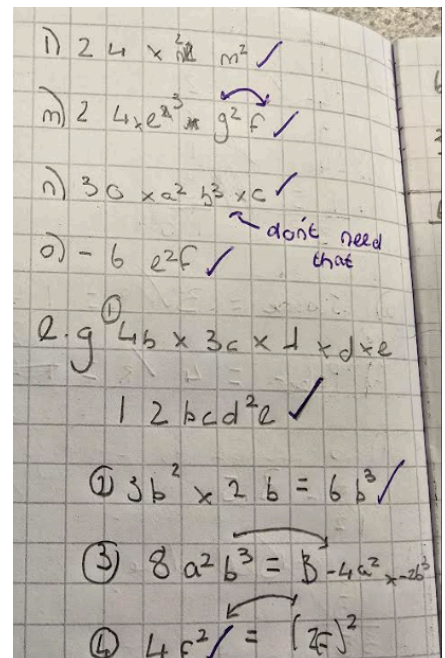 l) 2 4 × n² m² ✓
m) 2 4×e³ × g² f ✓
n) 30 × a² b³ × c ✓
don't need
that
o) - 6 e²f ✓
e.g ① 4b × 3c × d × d × e
1 2 bcd²e ✓
② 3b² × 2 b = 6 b³ ✓
③ 8 a² b³ = -4a² × -2b³
④ 4f² ✓ = (2f)²